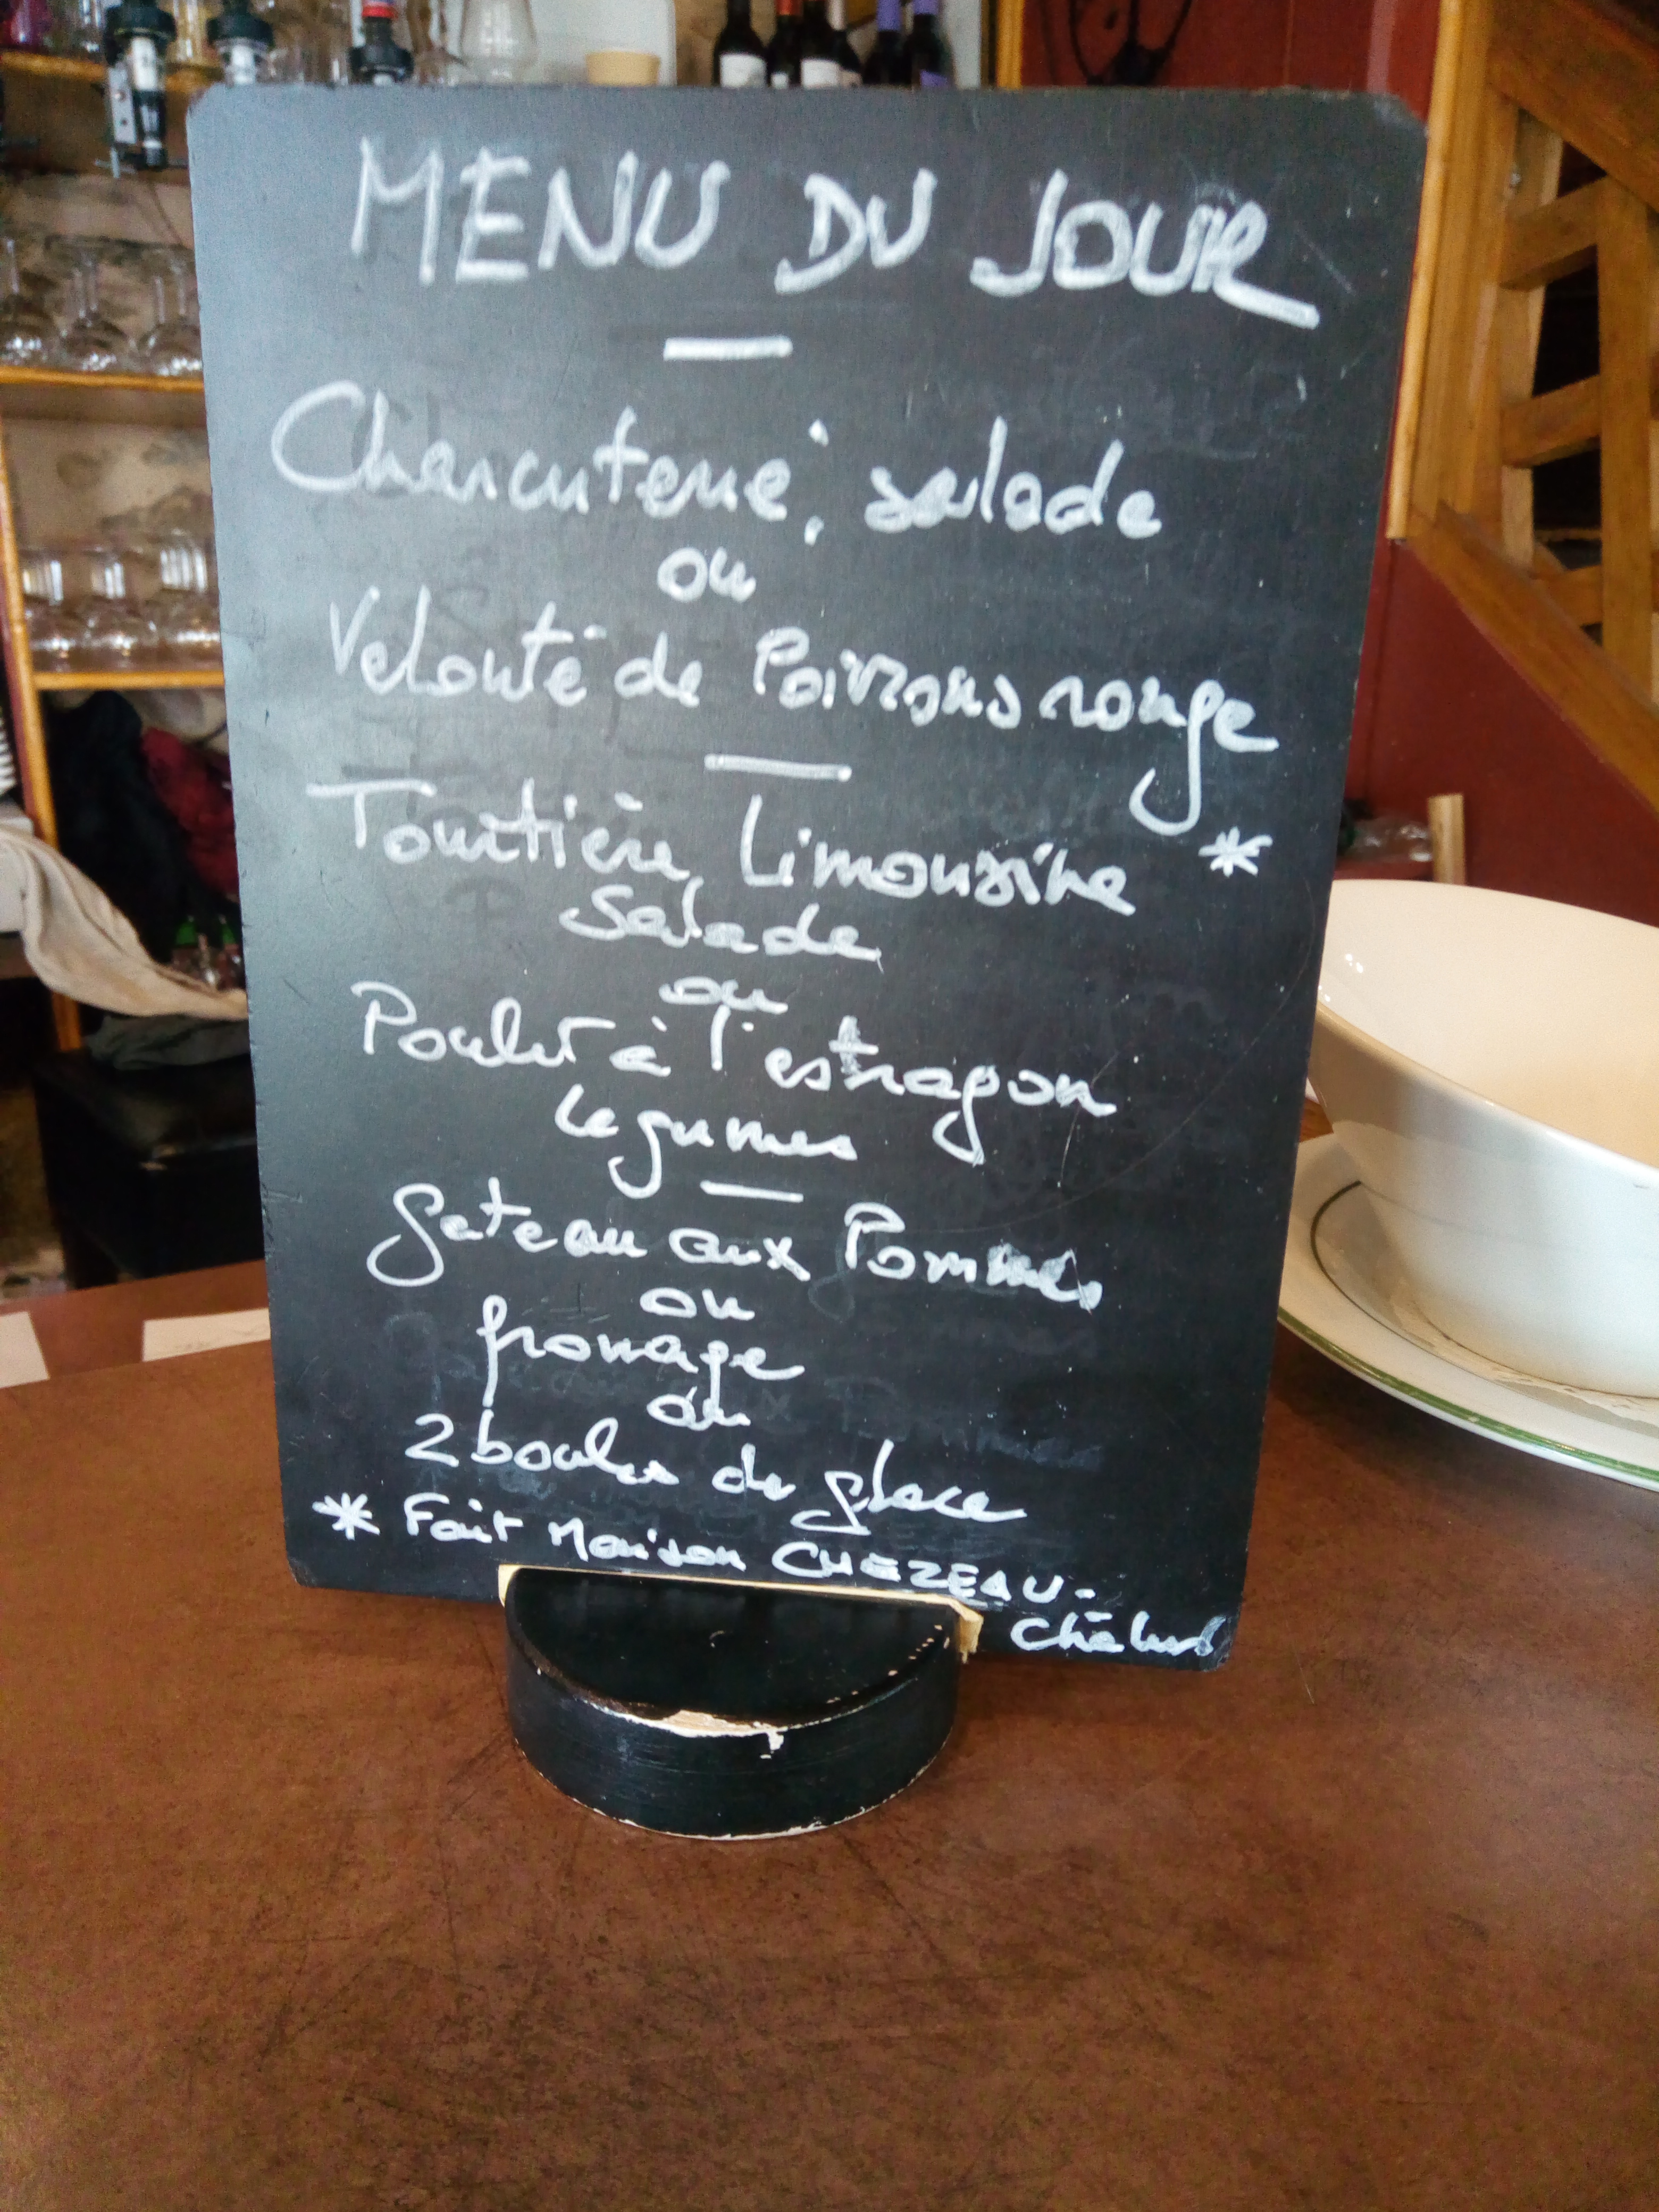 MENU DU JOUR
Charcuterie, salade
ou
Velouté de Poivrons rouge
Tourtière Limousine *
Salade
ou
Poulet à l'estragon
Légumes
Gateau aux Pommes
ou
fromage
ou
2 boules de glace
* Fait Maison CHEZEAU-
Châlus